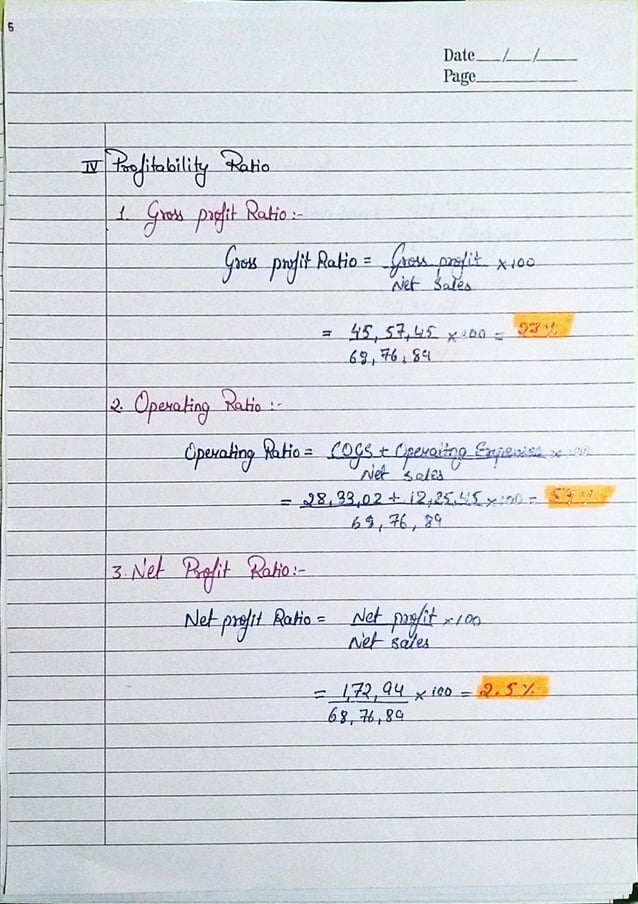 5
Date__/__/__
Page____
IV Profitability Ratio
1. Gross profit Ratio:-
Gross profit Ratio = Gross profit × 100
Net Sales
= 45,57,45 × 100 =
68,76,89
2. Operating Ratio:-
Operating Ratio = COGS + Operaitng Expenses ×
Net Sales
= 28,33,02 + 12,25,45 × 100 =
68,76,89
3. Net Profit Ratio:-
Net profit Ratio = Net profit × 100
Net Sales
= 1,72,94 × 100 = 2.5%
68,76,89